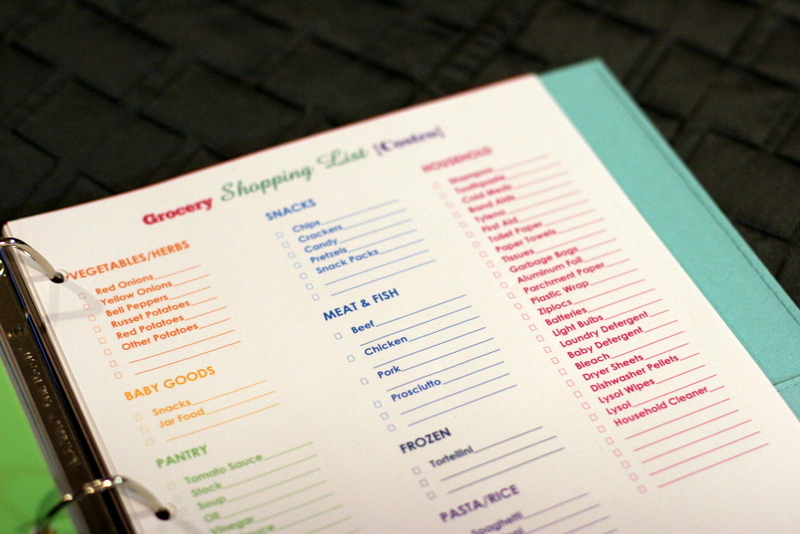 Grocery Shopping List {Costco}
VEGETABLES/HERBS
Red Onions
Yellow Onions
Bell Peppers
Russet Potatoes
Red Potatoes
Other Potatoes
BABY GOODS
Snacks
Jar Food
PANTRY
Tomato Sauce
Stock
Soup
Oil
Vinegar
SNACKS
Chips
Crackers
Candy
Pretzels
Snack Packs
MEAT & FISH
Beef
Chicken
Pork
Prosciutto
FROZEN
Tortellini
PASTA/RICE
Spaghetti
HOUSEHOLD
Shampoo
Toothpaste
Cold Meds
Band Aids
Tylenol
First Aid
Toilet Paper
Paper Towels
Tissues
Garbage Bags
Aluminum Foil
Parchment Paper
Plastic Wrap
Ziplocs
Batteries
Light Bulbs
Laundry Detergent
Baby Detergent
Bleach
Dryer Sheets
Dishwasher Pellets
Lysol Wipes
Lysol
Household Cleaner